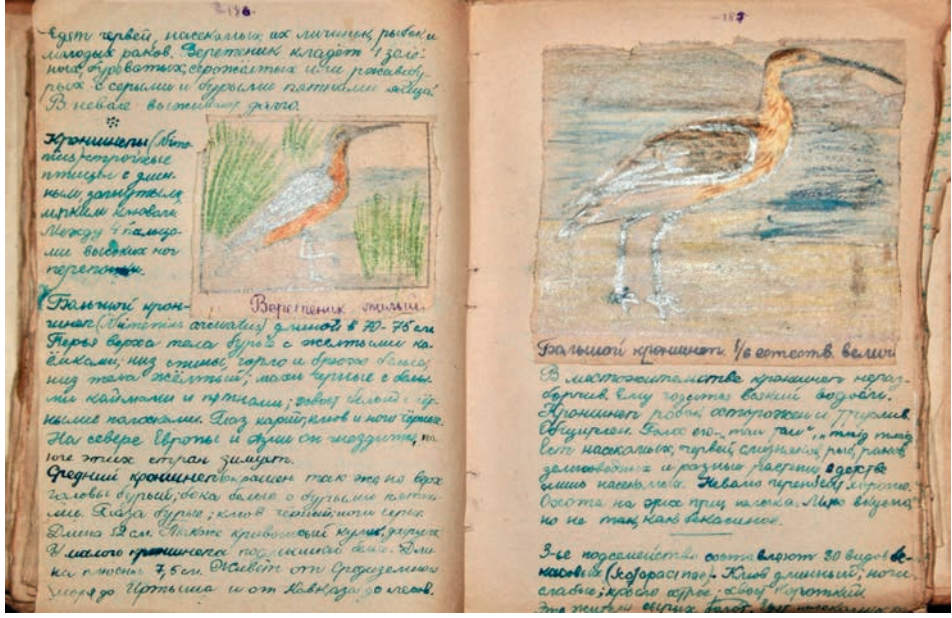 186
едят червей, насекомых, их личинок, рыбок и
молодых раков. Веретеник кладёт 4 зелё-
ных, буроватых, серожёлтых или ржавобу-
рых с серыми и бурыми пятнами яйца.
В неволе выживают долго.
Кроншнепы
стройные
птицы с длин-
ным, загнутым,
мягким клювом.
Между 4 пальца-
ми высоких ног
перепонки.
Веретеник малый.
Большой крон-
шнеп (Numenius arcuatus) длиной в 70-75 см
Перья верха тела бурые с жёлтыми ка-
ёмками; низ спины, горло и брюхо белые;
низ тела жёлтый; маховые чёрные с белы-
ми каймами и пятнами; хвост белый с чёр-
ными полосками. Глаз карий, клюв и ноги чёрные.
На севере Европы и Азии он гнездится, на
юге этих стран зимует.
Средний кроншнеп окрашен так же, но верх
головы бурый; бока белые с бурыми пятна-
ми. Глаза бурые; клов чёрный; ноги серые.
Длина 52 см.
У малого кроншнепа подхвостье белое. Дли-
на плюсны 7,5 см. Живёт от Средиземного
моря до Иртыша и от Кавказа до лесов.
187
Большой кроншнеп. 1/6 естеств. велич.
В местожительстве кроншнеп нераз-
борчив. Ему годятся всякий водоём.
Кроншнеп робок осторожен и труслив.
Общителен. Голос его
Ест насекомых, червей, слизняков, рыб, раков
земноводных и разные растения, в детстве
лишь насекомых. Неволю переносят хорошо.
Охота на этих птиц нелегка. Мясо вкусно,
но не так, как бекасиное.
3-ье подсемейство составляют 20 видов бе-
касовых. Клюв длинный; ноги
слабые; крыло острое; хвост короткий.
Это жители сырых болот.